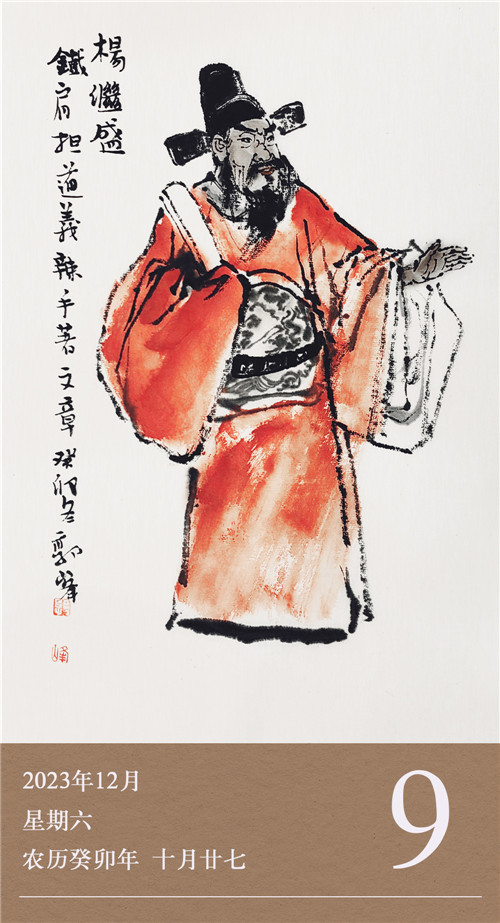 楊繼盛
鐵肩担道義辣手著文章癸卯冬郭峰
峰
2023年12月
星期六
农历癸卯年 十月廿七
9